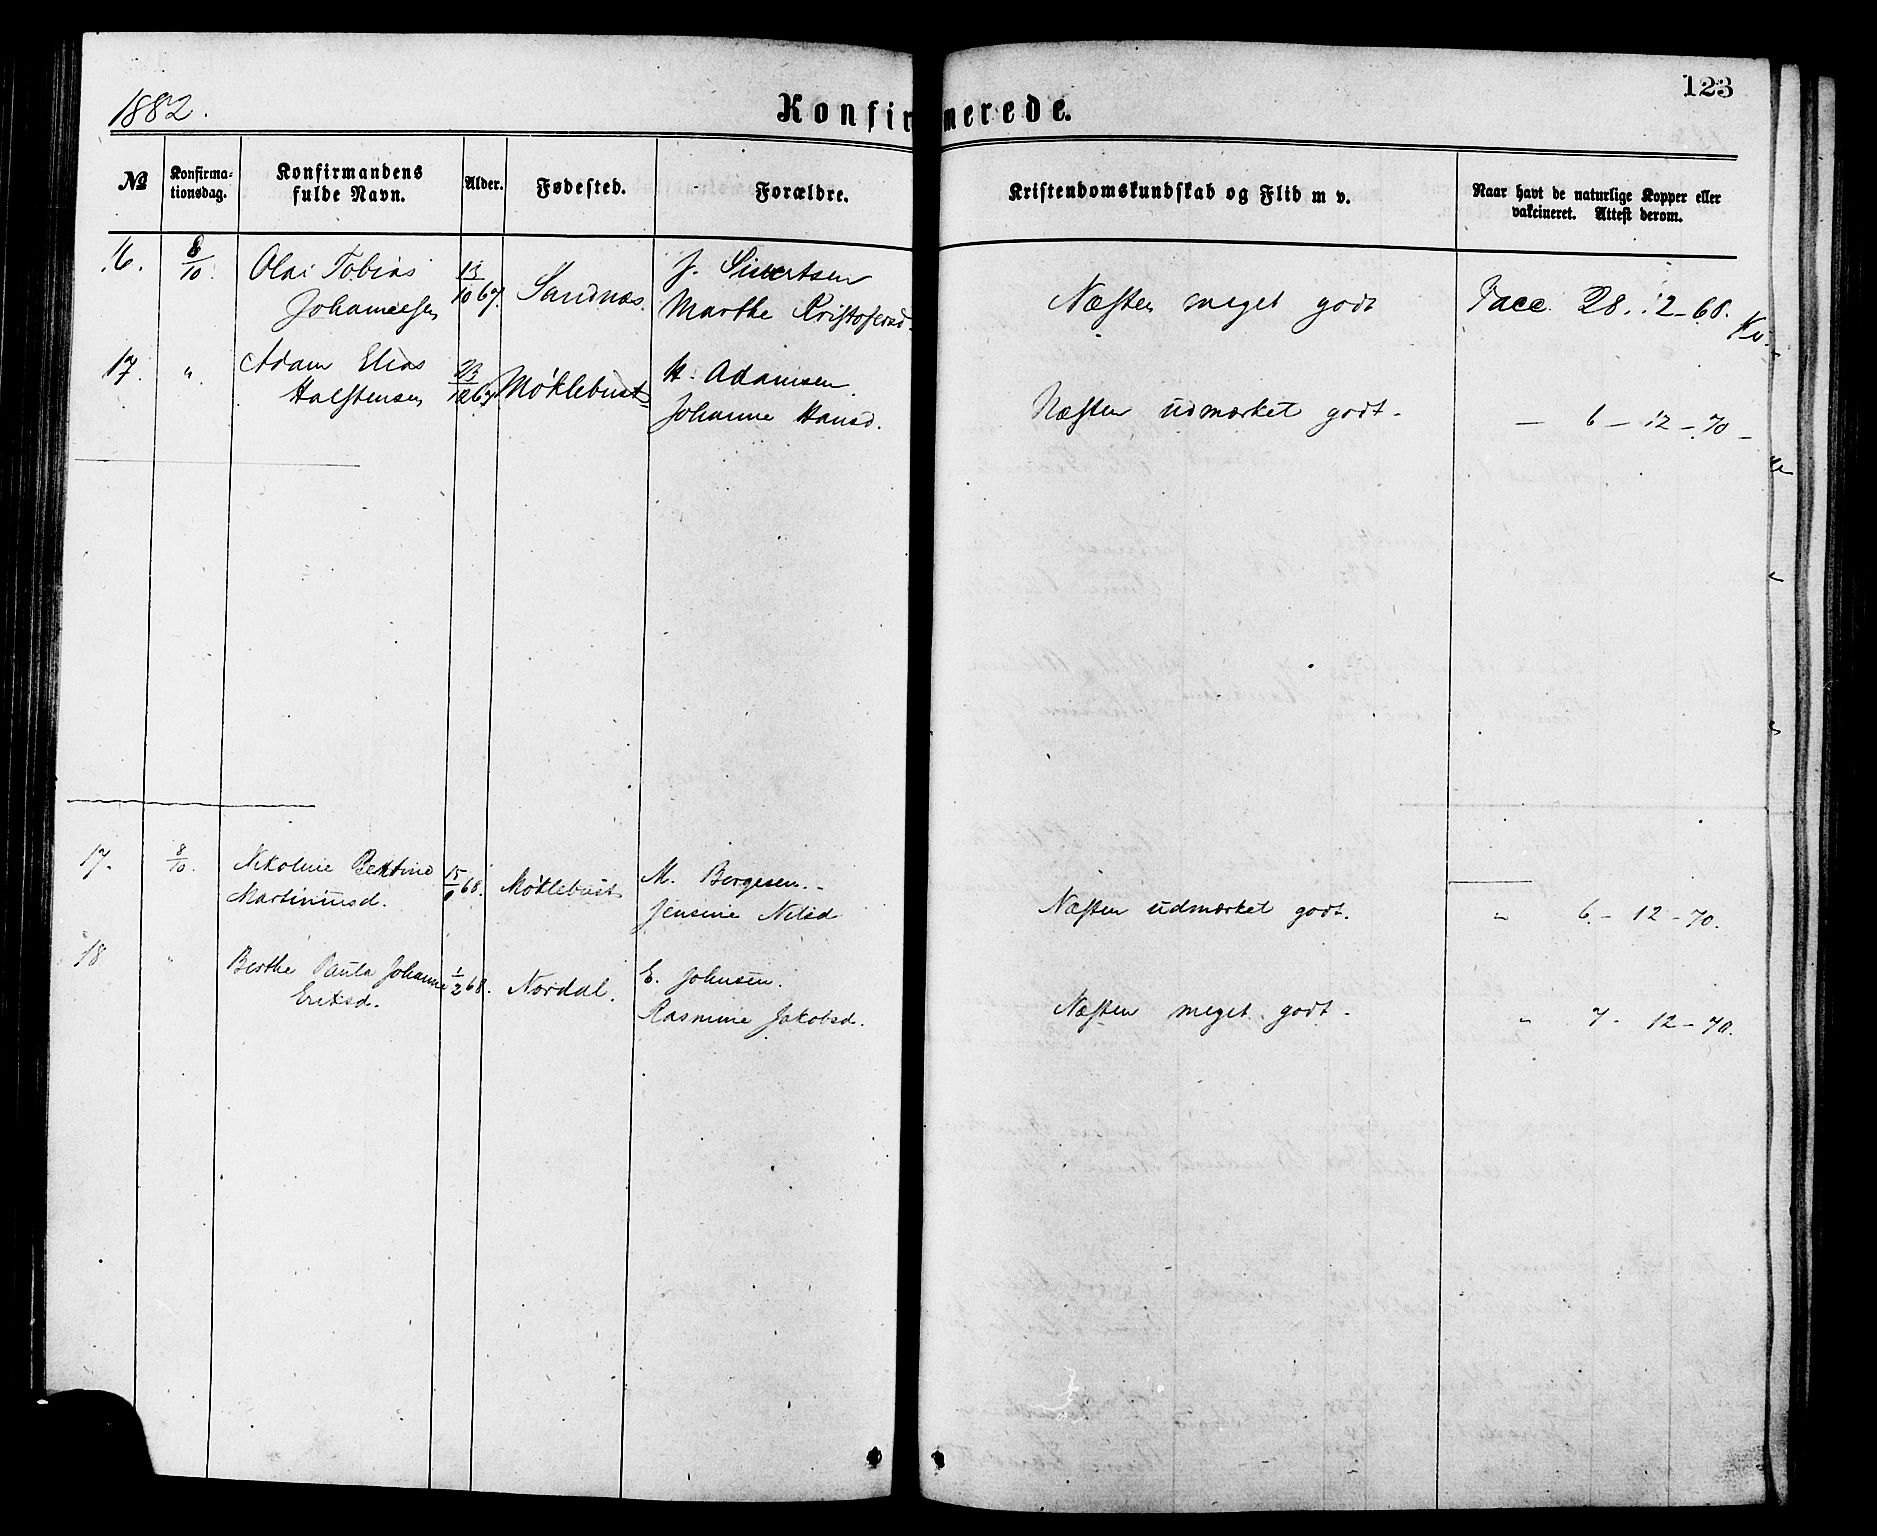 1882.
Konfirmerede.
123
№
Konfirma-
tionsdag.
Konfirmandens
fulde Navn.
Alder.
Fødested.
Forældre.
Kristendomskundskab og Flid m v.
Naar havt de naturlige Kopper eller
vakcineret. Attest derom.
16. 8/10. Olai Tobias 13/10 67. Sandnæs. J. Sivertsen
Johannesen Marthe Kristofersd. Næsten meget godt Vacc. 28. 12-68.
17. " Adam Elias 23/12 67. Møklebust H. Adamsen
Halstensen Johanne Hansd. Næsten udmærket godt. — 6 — 12 — 70 —
17. 8/10. Nikoline Bertine 15/ 68. Møklebust M. Børgesen.
Martiniusd. Jensine Nilsd Næsten udmærket godt. " 6. - 12 - 70.
18 " Berthe Paula Johanne 1/2 68. Nordal. E. Johnsen.
Eriksd. Rasmine Jakobsd. Næsten meget godt. " 7. 12 - 70.